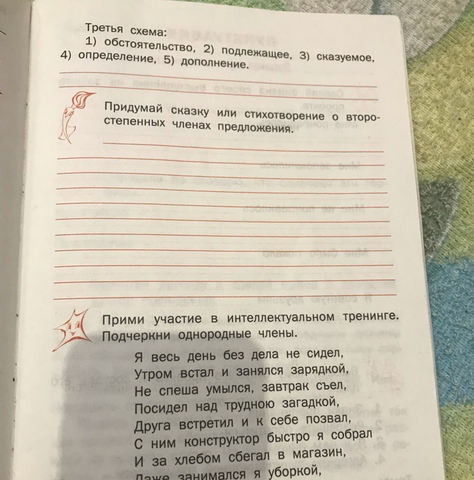 Третья схема:
1) обстоятельство, 2) подлежащее, 3) сказуемое,
4) определение, 5) дополнение.
Придумай сказку или стихотворение о второ-
степенных членах предложения.
Прими участие в интеллектуальном тренинге.
Подчеркни однородные члены.
Я весь день без дела не сидел,
Утром встал и занялся зарядкой,
Не спеша умылся, завтрак съел,
Посидел над трудною загадкой,
Друга встретил и к себе позвал,
С ним конструктор быстро я собрал
И за хлебом сбегал в магазин,
Даже занимался я уборкой,